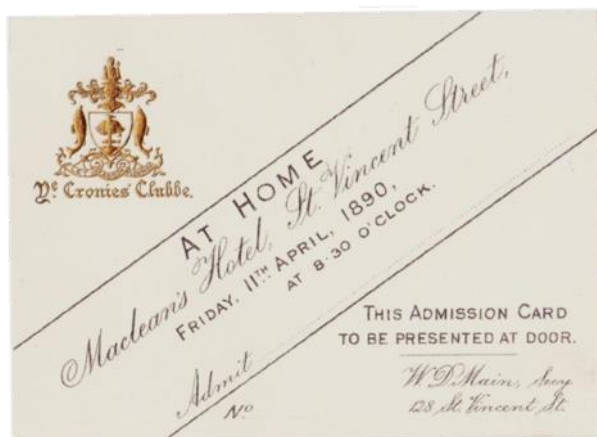 Yᵉ Cronies Clubbe.
AT HOME
Maclean's Hotel, St. Vincent Street,
FRIDAY, 11TH APRIL, 1890,
AT 8·30 O'CLOCK.
Admit
No
THIS ADMISSION CARD
TO BE PRESENTED AT DOOR.
W. D. Main, Secy
128 St. Vincent St.